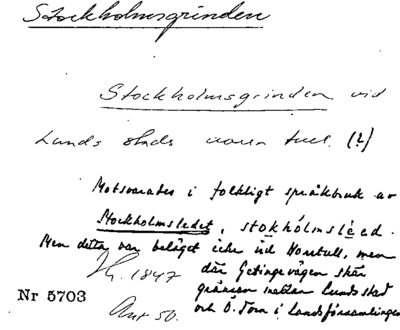 Stockholmsgrinden
Stockholmsgrinden vid
Lunds stads norra tull. (?)
Motsvarades i folkligt språkbruk av
Stockholmsledet, stokhólmsléed.
Men detta var beläget icke vid Norrtull, men
där Getingevägen skär
H. 1847
gränsen mellan Lunds stad
Nr 5703
och D:o Torn i Landsförsamlingen
Ant 50.